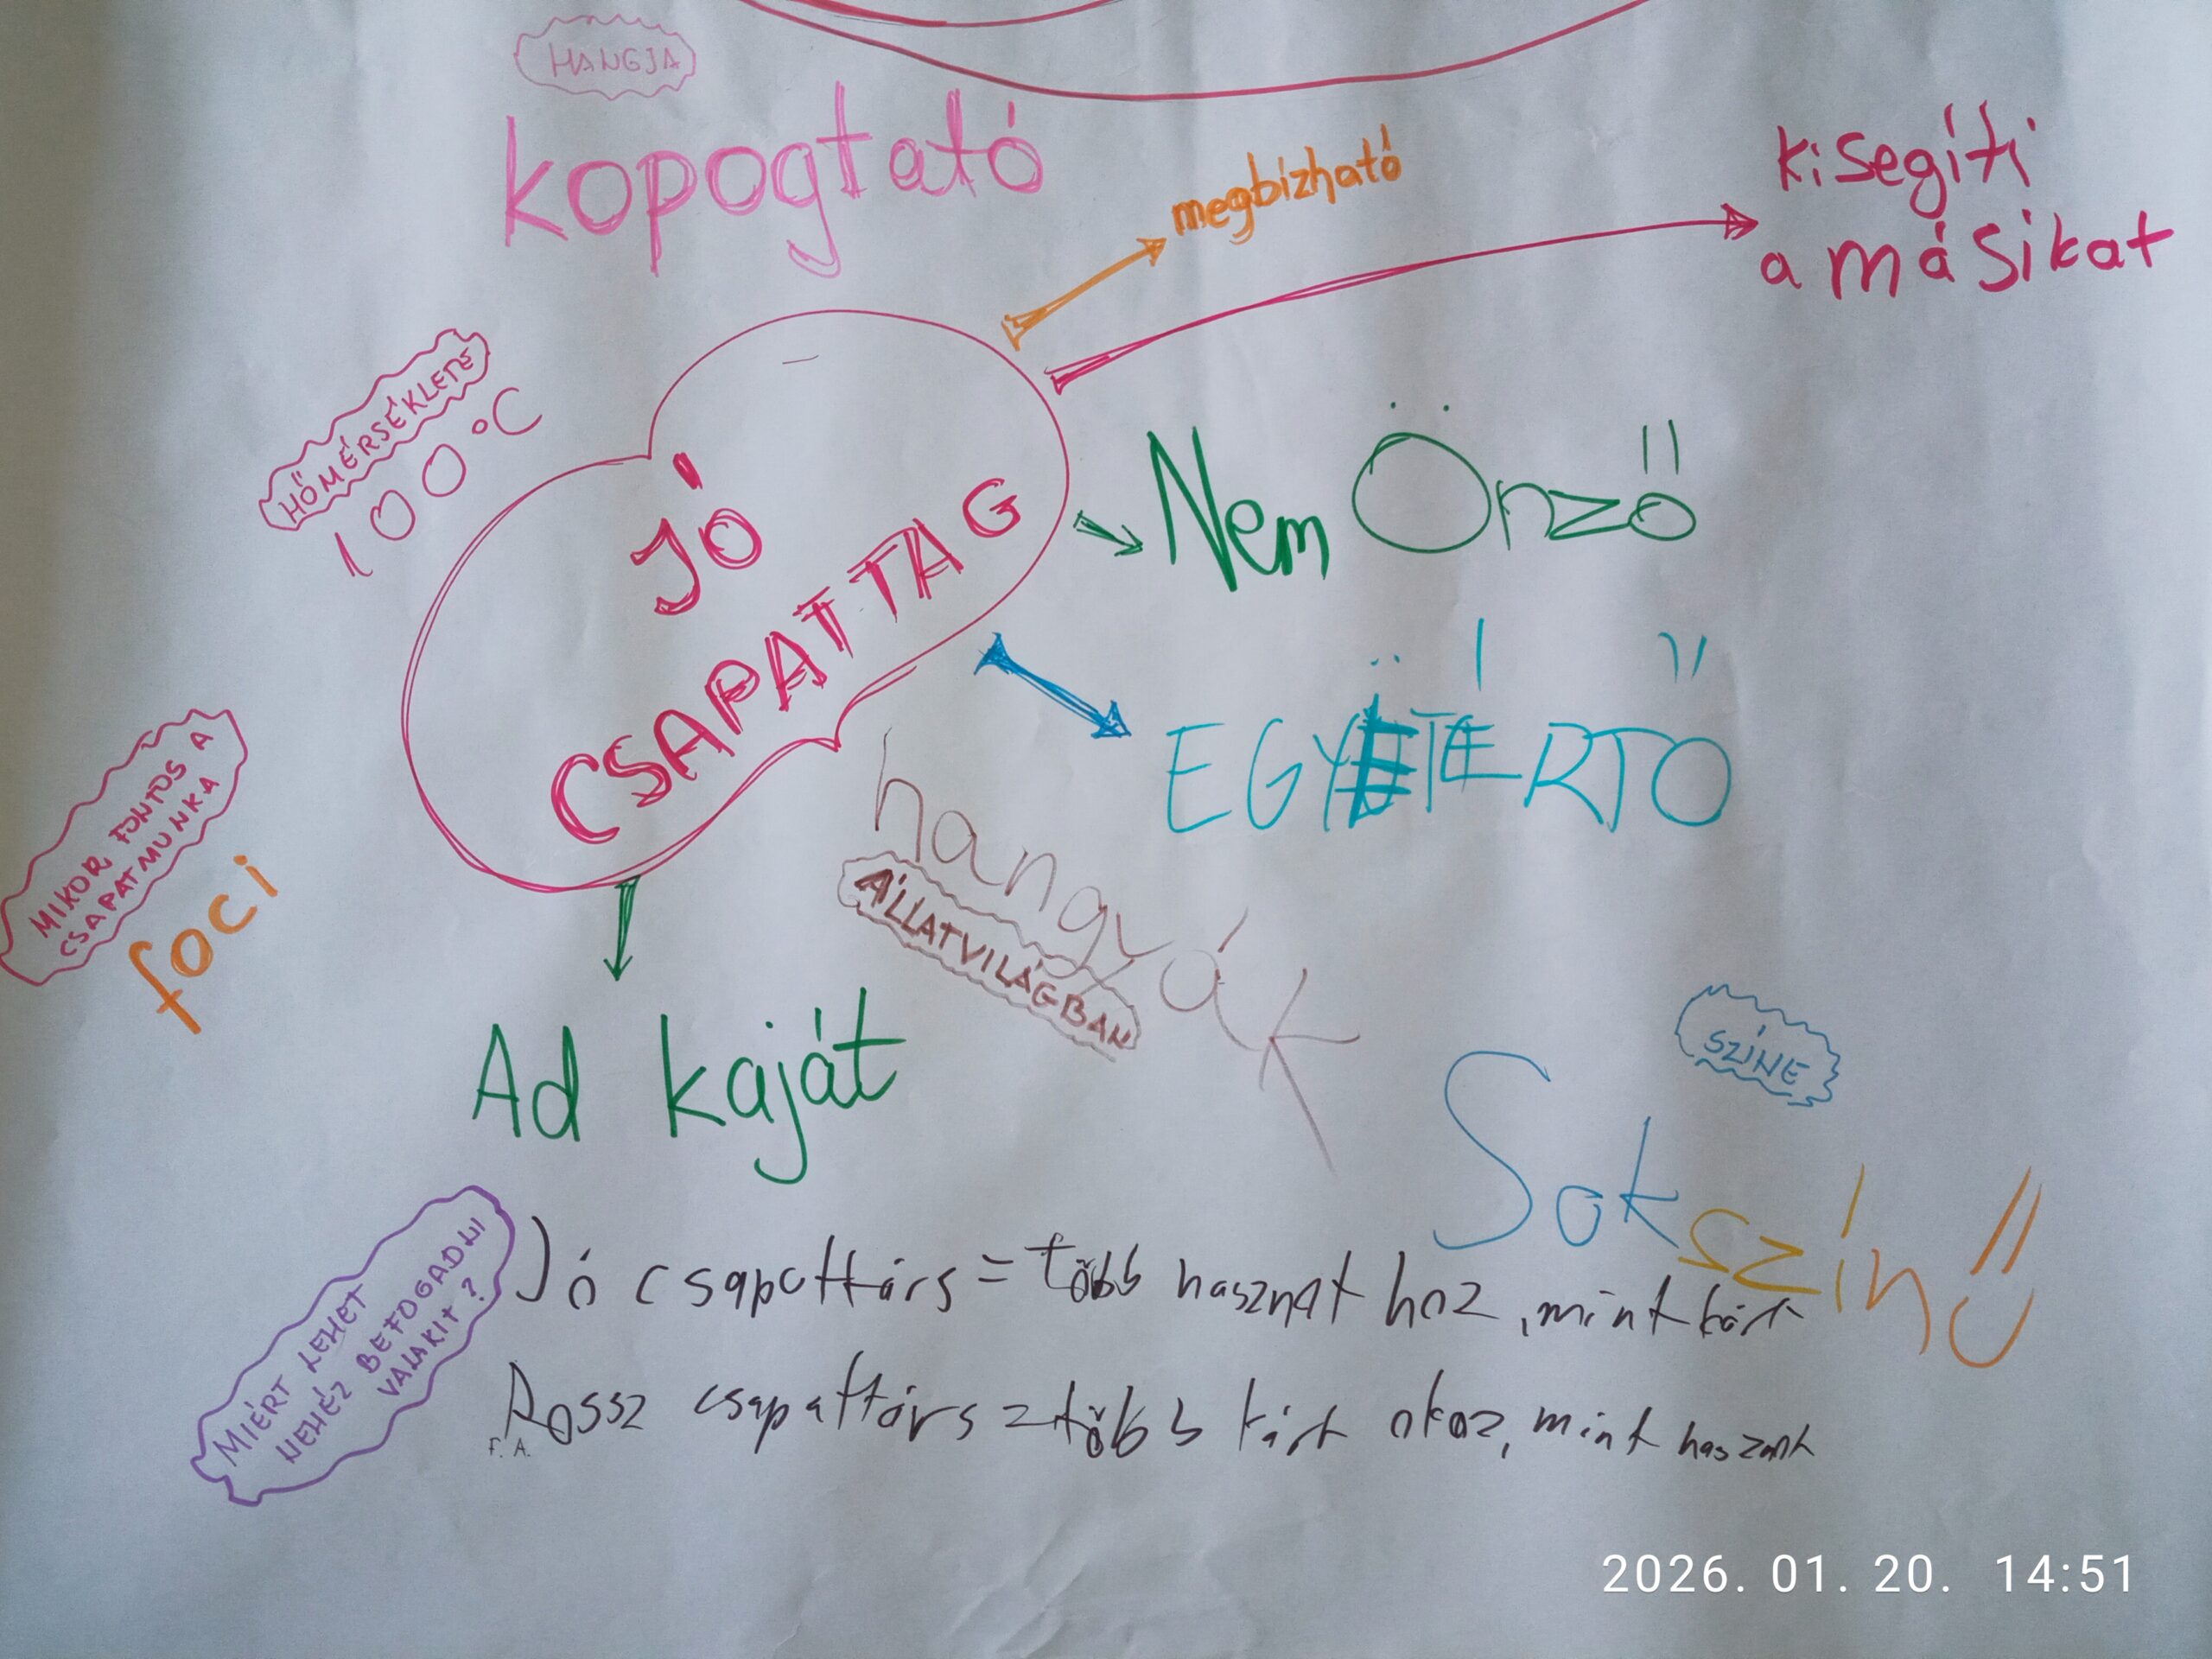 HANGJA
kopogtató
megbízható
kisegíti
a másikat
HŐMÉRSÉKLETE
100°C
JÓ
CSAPATTAG
Nem Önző
EGYTÉRTŐ
MIKOR FONTOS A
CSAPATMUNKA
foci
hangyák
ÁLLATVILÁGBAN
Ad kaját
SZÍNE
Sokszínű
MIÉRT LEHET
NEHÉZ BEFOGADNI
VALAKIT?
Jó csapattárs = több hasznat hoz, mint kárt
Rossz csapattárs = több kárt okoz, mint hasznt
F. A.
2026. 01. 20. 14:51